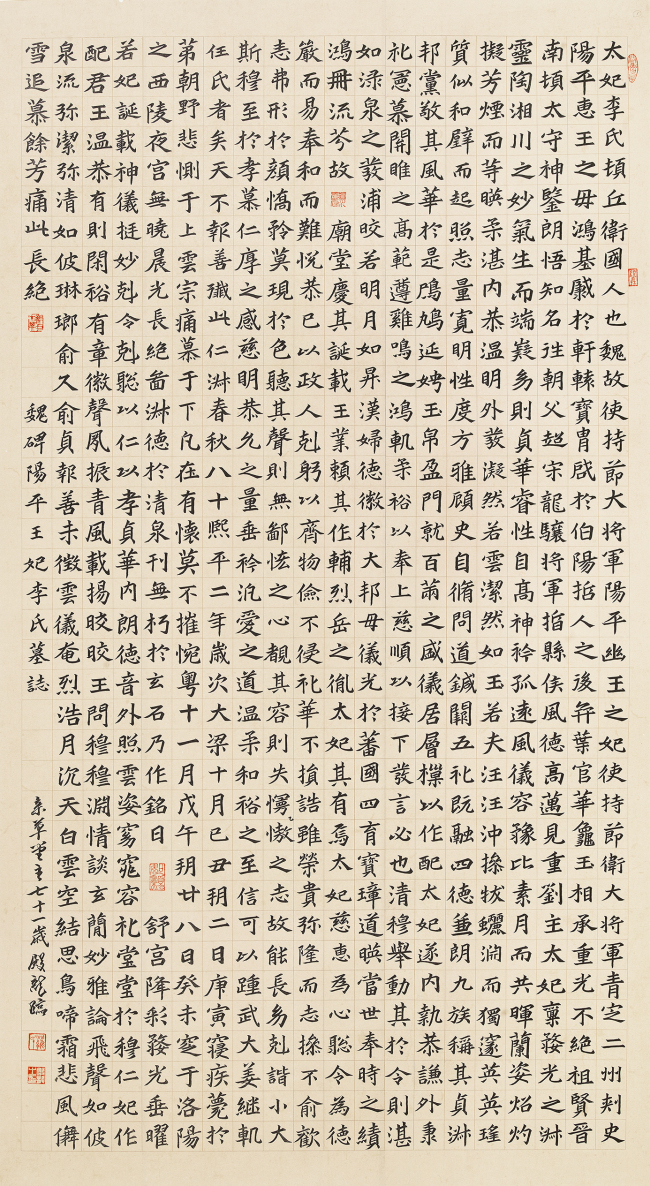 太妃李氏頓丘衛國人也魏故使持節大將軍陽平幽王之妃使持節衛大將軍青定二州刺史
陽平惠王之母鴻基感於軒轅寶胄啟於伯陽掐人之後弈葉官華龜玉相承重光不絕祖賢晉
南頓太守神鑒朗悟知名往朝父超宋龍驤將軍掐縣侯風德高邁見重劉主太妃稟婺光之淑
靈陶湘川之妙氣生而端嶷幼則貞華睿性自高神衿孤遠風儀容豫比素月而共暉蘭姿炤灼
擬芳煙而等暎柔湛內恭溫明外發凝然若雲潔然如玉若夫汪汪沖操澗而獨邃英英瑤
質似和璧而起照志量寬明性度方雅顧史自脩問道鍼闢五礼既融四德兼朗九族稱其貞淑
邦黨敬其風華於是鳲鳩延娉玉帛盈門就百兩之盛儀居層樑以作配太妃遂內執恭謙外秉
礼憲慕關雎之高範遵雞鳴之鴻軌柔裕以奉上慈順以接下發言必也清穆舉動其於令則湛
如淥泉之發浦皎若明月如昇漢婦德徽於大邦母儀光於蕃國四育寶璋道暎當世奉時之績
鴻冊流芩故 廟堂慶其誕載王業賴其作輔烈岳之胤太妃其有焉太妃慈惠為心聰令為德
嚴而易奉和而難悅恭己以政人剋躬以齊物儉不侵礼華不損誥雖榮貴弥隆而志操不俞歡
恚弗形於顏憍矜莫現於色聽其聲則無鄙恡之心覩其容則失慢慠之志故能長幼剋諧小大
斯穆至於孝慕仁厚之感慈明恭允之量垂衿汎愛之道溫柔和裕之至信可以踵武大姜繼軌
任氏者矣天不報善殲此仁淑春秋八十熙平二年歲次大梁十月己丑朔二日庚寅寢疾薨於
苐朝野悲惻于上雲宗痛慕于下凡在有懷莫不摧惋粵十一月戊午朔廿八日癸未窆于洛陽
之西陵夜宮無曉晨光長絕啚淑德於清泉刊無朽於玄石乃作銘曰 舒宮降彩婺光垂曜
若妃誕載神儀挺妙剋令剋聰以仁以孝貞華內朗德音外照雲姿窈窕容礼堂堂於穆仁妃作
配君王溫恭有則閑裕有章徽聲夙振青風載揚皎皎王問穆穆淵情談玄簡妙雅論飛聲如彼
泉流弥潔弥清如彼琳瑯俞久俞貞報善未徵雲儀奄烈浩月沉天白雲空結思鳥啼霜悲風僻
雪追慕餘芳痛此長絕 魏碑陽平王妃李氏墓誌
草堂主七十一歲殷龍臨